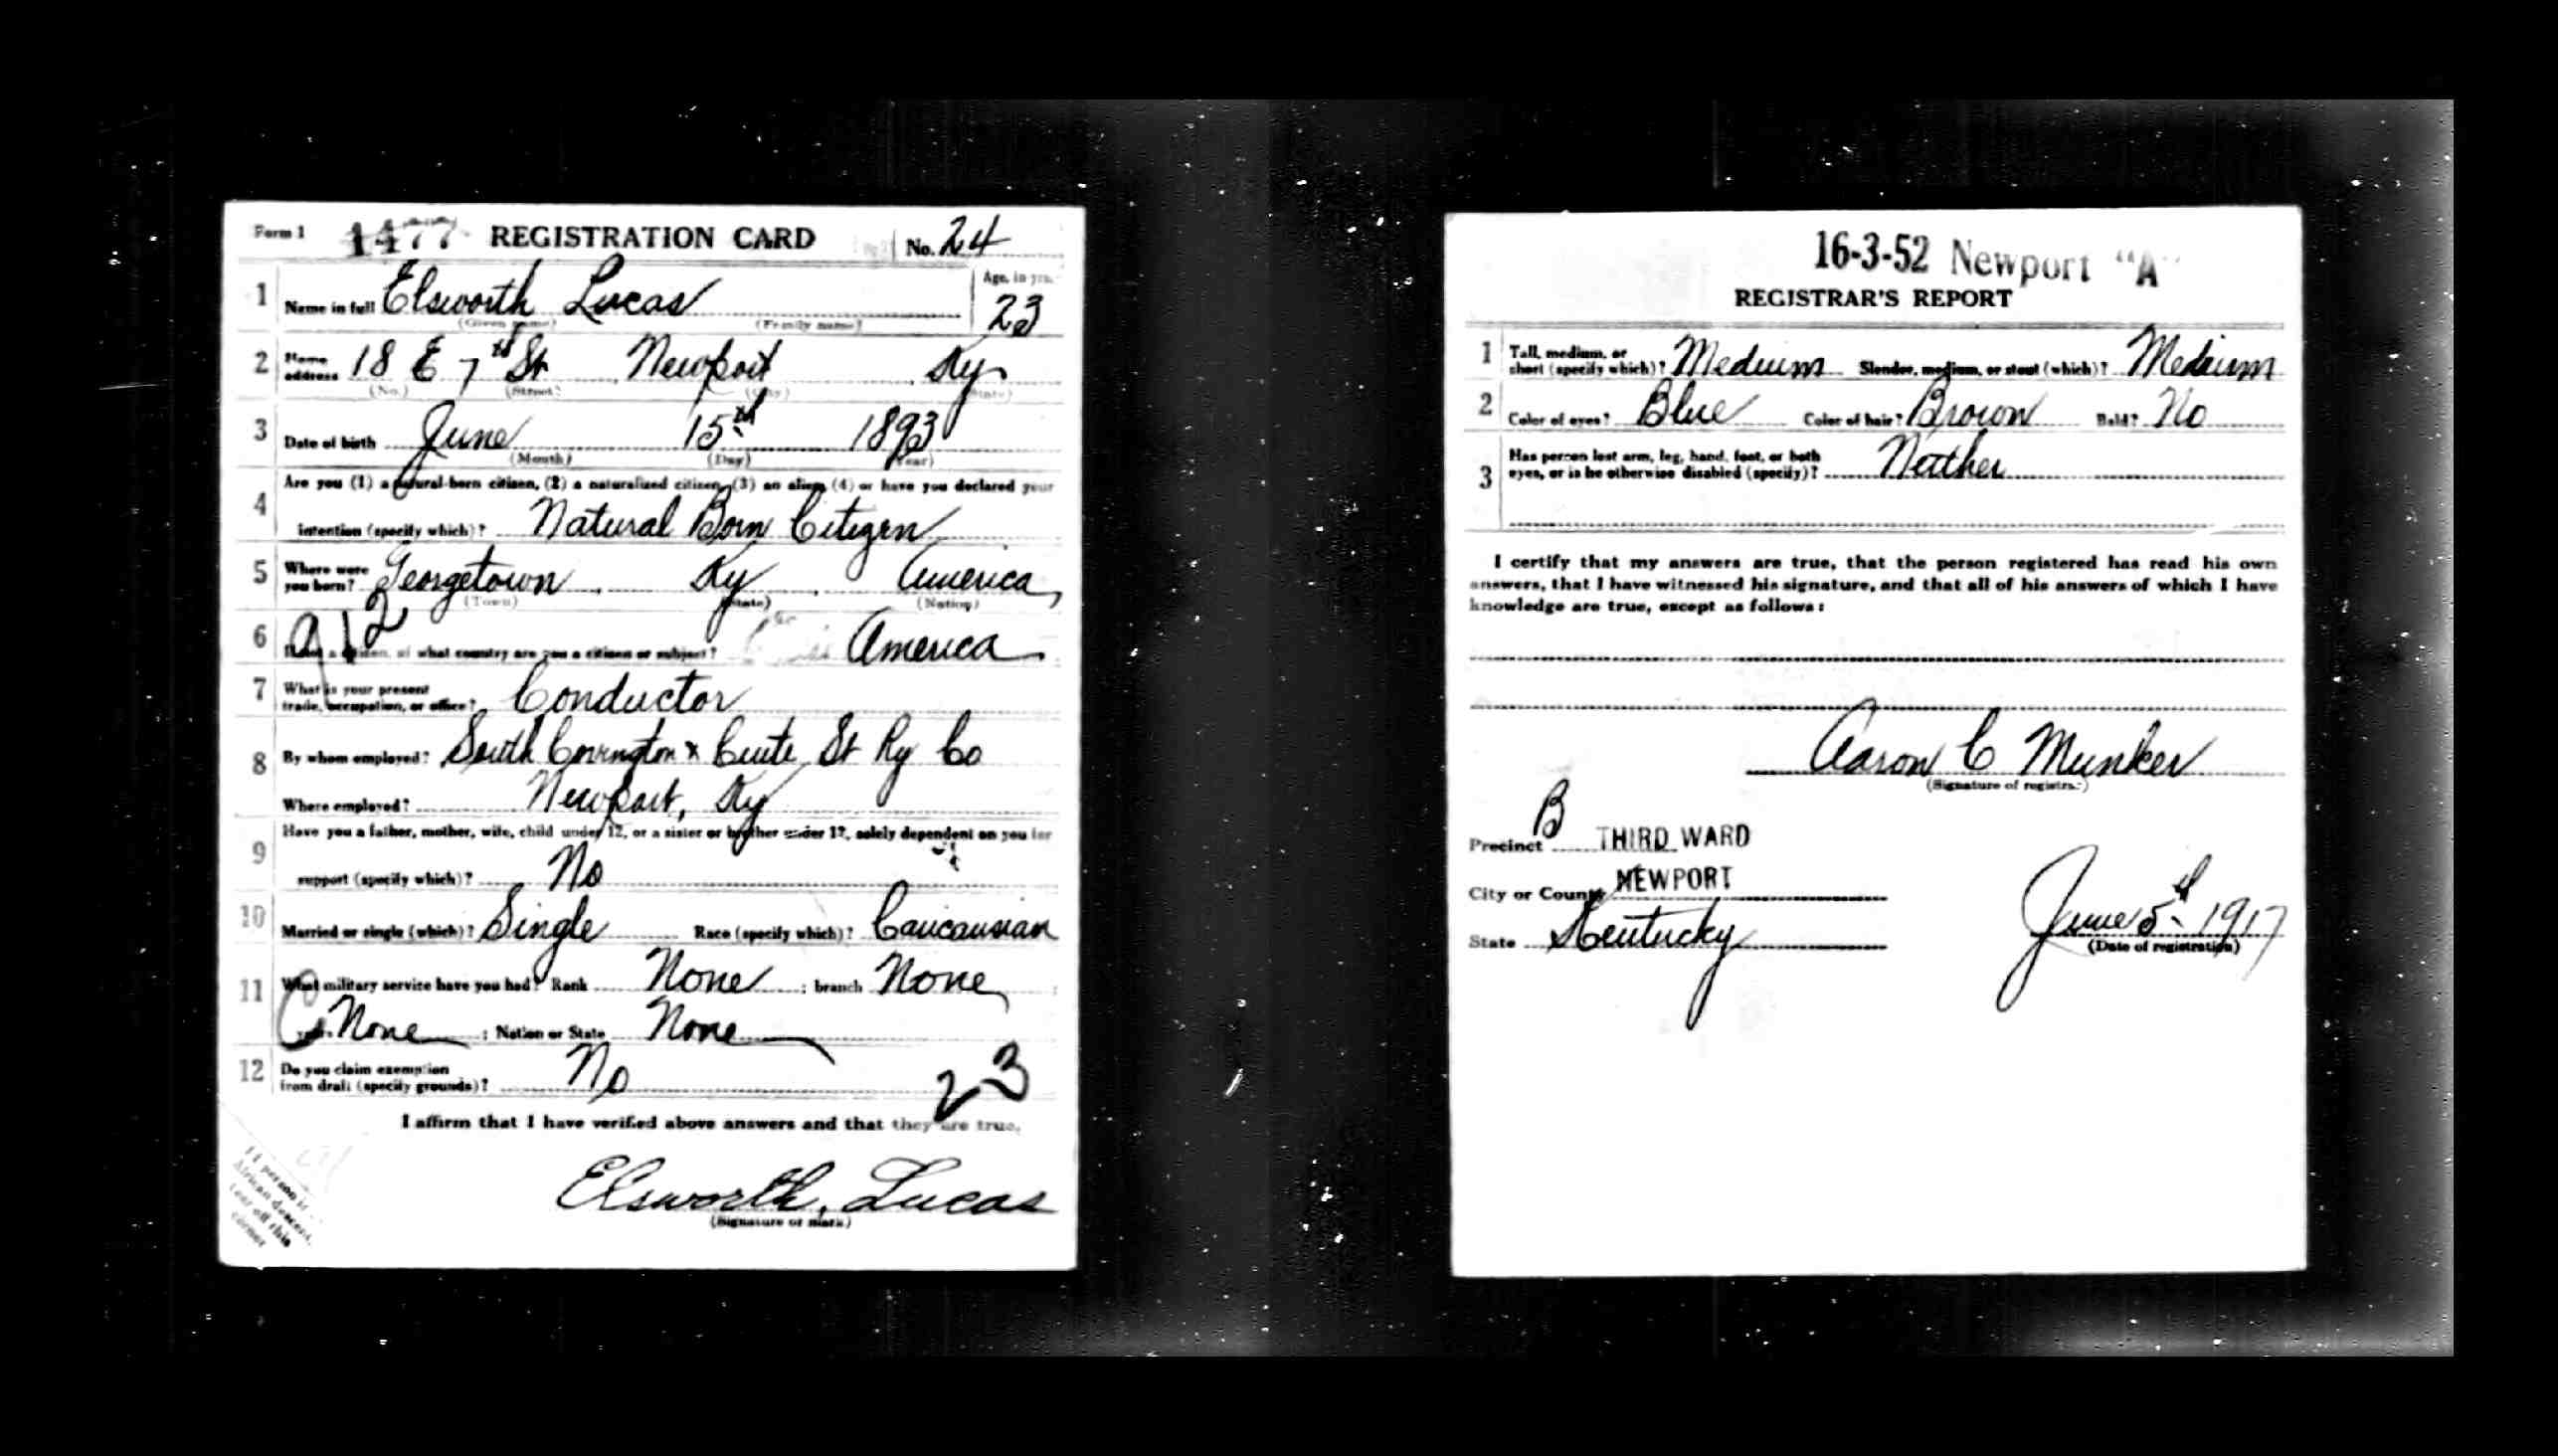 Form 1 1477 REGISTRATION CARD No. 24
1 Name in full Elsworth Lucas Age, in yrs. 23
(Given name) (Family name)
2 Home address 18 E 7th St Newport Ky
(No.) (Street) (City) (State)
3 Date of birth June 15th 1893
(Month) (Day) (Year)
Are you (1) a natural-born citizen, (2) a naturalized citizen, (3) an alien, (4) or have you declared your
4 intention (specify which)? Natural Born Citizen
5 Where were you born? Georgetown Ky America
(Town) (State) (Nation)
912
6 a citizen, of what country are you a citizen or subject? America
7 What is your present trade, occupation, or office? Conductor
8 By whom employed? South Covington & St Ry Co
Where employed? Newport, Ky
Have you a father, mother, wife, child under 12, or a sister or brother under 12, solely dependent on you for
9 support (specify which)? No
10 Married or single (which)? Single Race (specify which)? Caucausian
11 What military service have you had? Rank None ; branch None
years None ; Nation or State None
12 Do you claim exemption from draft (specify grounds)? No
23
I affirm that I have verified above answers and that they are true.
Elsworth, Lucas
(Signature or mark)
If person is
African descent,
tear off this
corner
16-3-52 Newport "A"
REGISTRAR'S REPORT
1 Tall, medium, or short (specify which)? Medium Slender, medium, or stout (which)? Medium
2 Color of eyes? Blue Color of hair? Brown Bald? No
3 Has person lost arm, leg, hand, foot, or both eyes, or is he otherwise disabled (specify)? Neither
I certify that my answers are true, that the person registered has read his own
answers, that I have witnessed his signature, and that all of his answers of which I have
knowledge are true, except as follows:
Aaron C Munker
(Signature of registrar)
Precinct B THIRD WARD
City or County NEWPORT
State Kentucky June 5th 1917
(Date of registration)